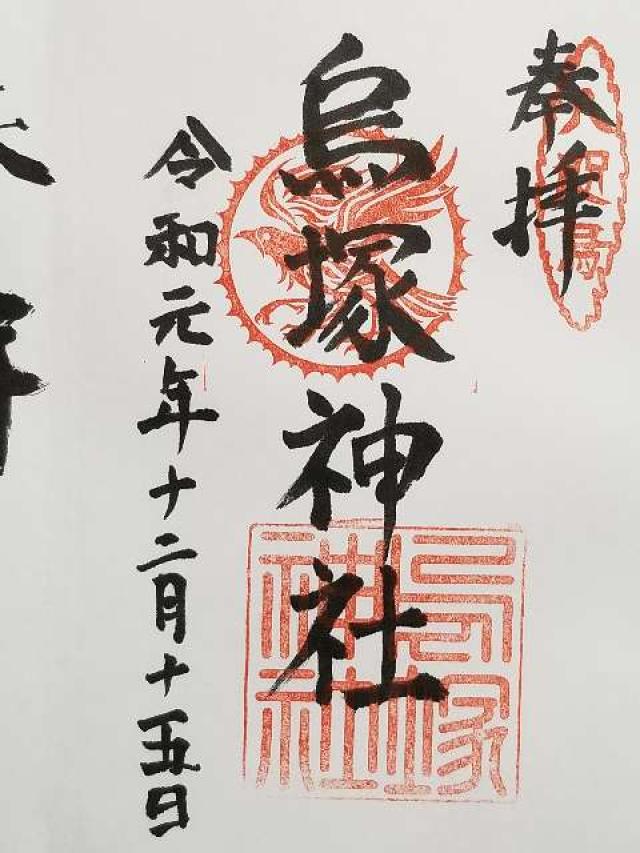 奉拝
烏塚神社
令和元年十二月十五日
烏塚
神社